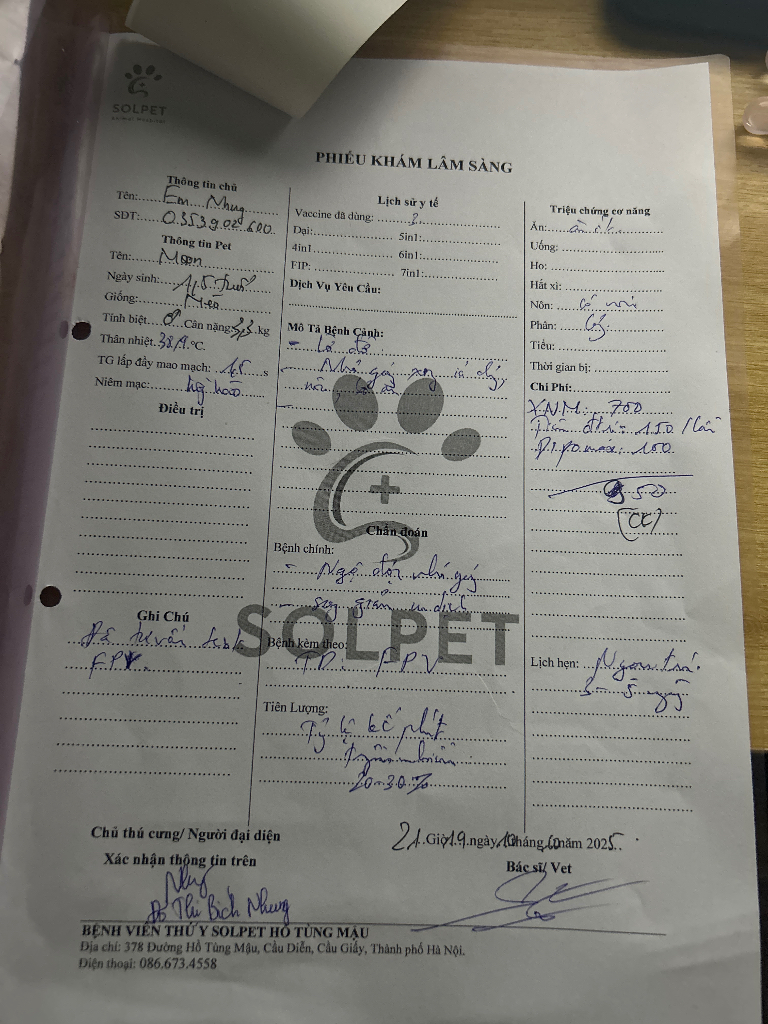 SOLPET
PHIẾU KHÁM LÂM SÀNG
Thông tin chủ
Tên: Em Nhung
SĐT: 0353902600
Thông tin Pet
Tên: Moon
Ngày sinh: 1,5 tuổi
Giống: Mèo
Tính biệt: ♂ Cân nặng: 3,3 kg
Thân nhiệt: 38,9 °C.
TG lấp đầy mao mạch: 1,5 s
Niêm mạc: hg hào
Điều trị
Ghi Chú
Đã tư vấn
FPV.
Lịch sử y tế
Vaccine đã dùng: ?
Dại: 5in1:
4in1 6in1:
FIP: 7in1:
Dịch Vụ Yêu Cầu:
Mô Tả Bệnh Cảnh:
- Lờ đờ
- Nhá quý xong
Chẩn đoán
Bệnh chính:
- Ngộ độc nhá quý
- suy giảm m dịch
SOLPET
Bệnh kèm theo:
TD: FPV
Tiên Lượng:
Tỷ lệ kế phát
20-30%
Triệu chứng cơ năng
Ăn: ăn ok
Uống:
Ho:
Hắt xì:
Nôn: có nôn
Phân:
Tiểu:
Thời gian bị:
Chi Phí:
XNM: 700
150/lần
100
950
(CK)
Lịch hẹn: Ngoại trú
3-5 ngày
Chủ thú cưng/ Người đại diện
Xác nhận thông tin trên
Nhung
Đỗ Thị Bích Nhung
21 Giờ 19 ngày 10 tháng 10 năm 2025
Bác sĩ/ Vet
BỆNH VIỆN THÚ Y SOLPET HỒ TÙNG MẬU
Địa chỉ: 378 Đường Hồ Tùng Mậu, Cầu Diễn, Cầu Giấy, Thành phố Hà Nội.
Điện thoại: 086.673.4558